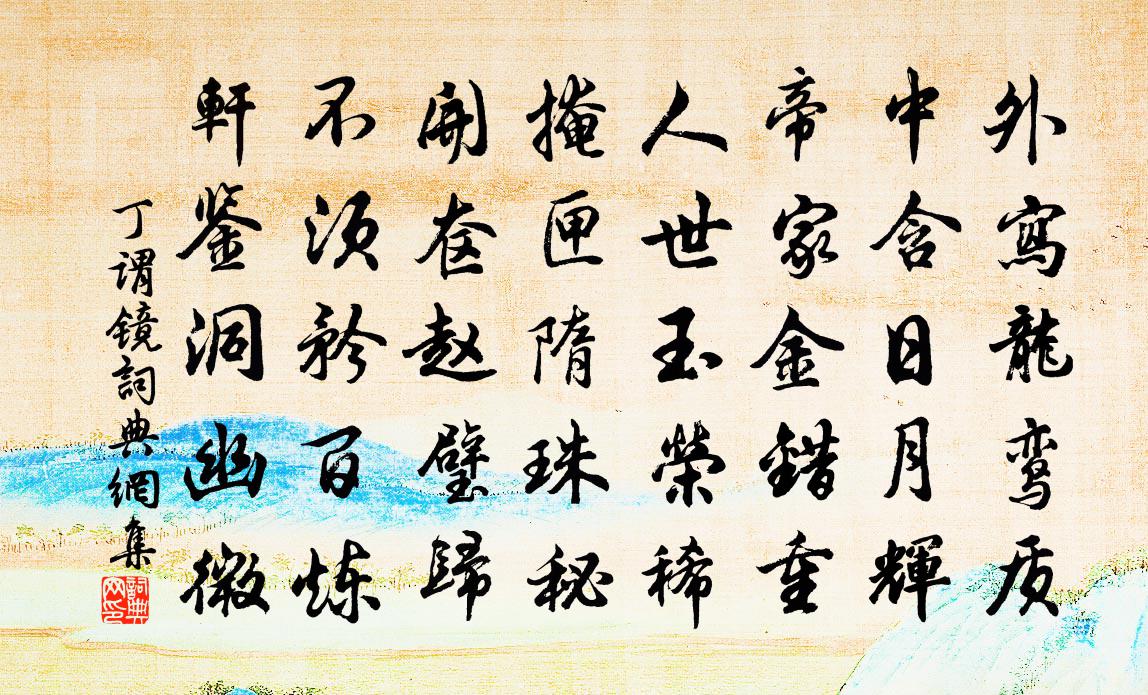 外寫龍鸾质
中含日月輝
帝家金錯重
人世玉榮稀
掩匣隋珠秘
開奁赵璧歸
不须矜百炼
軒鉴洞幽微
丁谓镜詞典網集
詞典网印